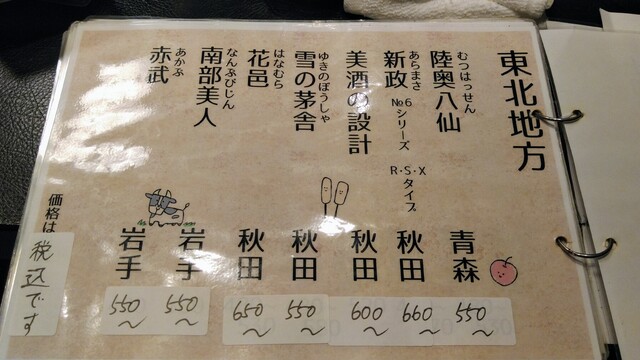 東北地方
むつはっせん
陸奥八仙 青森 550～
あらまさ
新政 №6シリーズ R・S・Xタイプ 秋田 660～
美酒の設計 秋田 600～
ゆきのぼうしゃ
雪の茅舎 秋田 550～
はなむら
花邑 秋田 650～
なんぶびじん
南部美人 岩手 550～
あかぶ
赤武 岩手 550～
価格は
税込です